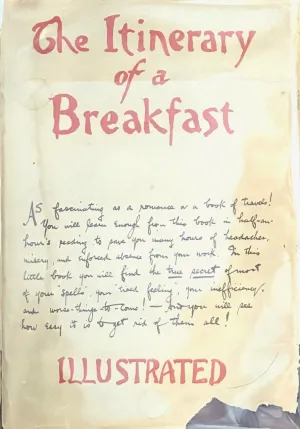 The Itinerary
of a
Breakfast
AS fascinating as a romance or a book of travels!
You will learn enough from this book in half-an-
hour's reading to save you many hours of headaches,
misery, and enforced absence from your work. In this
little book you will find the true secret of most
of your "spells", your "tired feeling", your inefficiency,
and worse-things-to-come! — And you will see
how easy it is to get rid of them all!
ILLUSTRATED